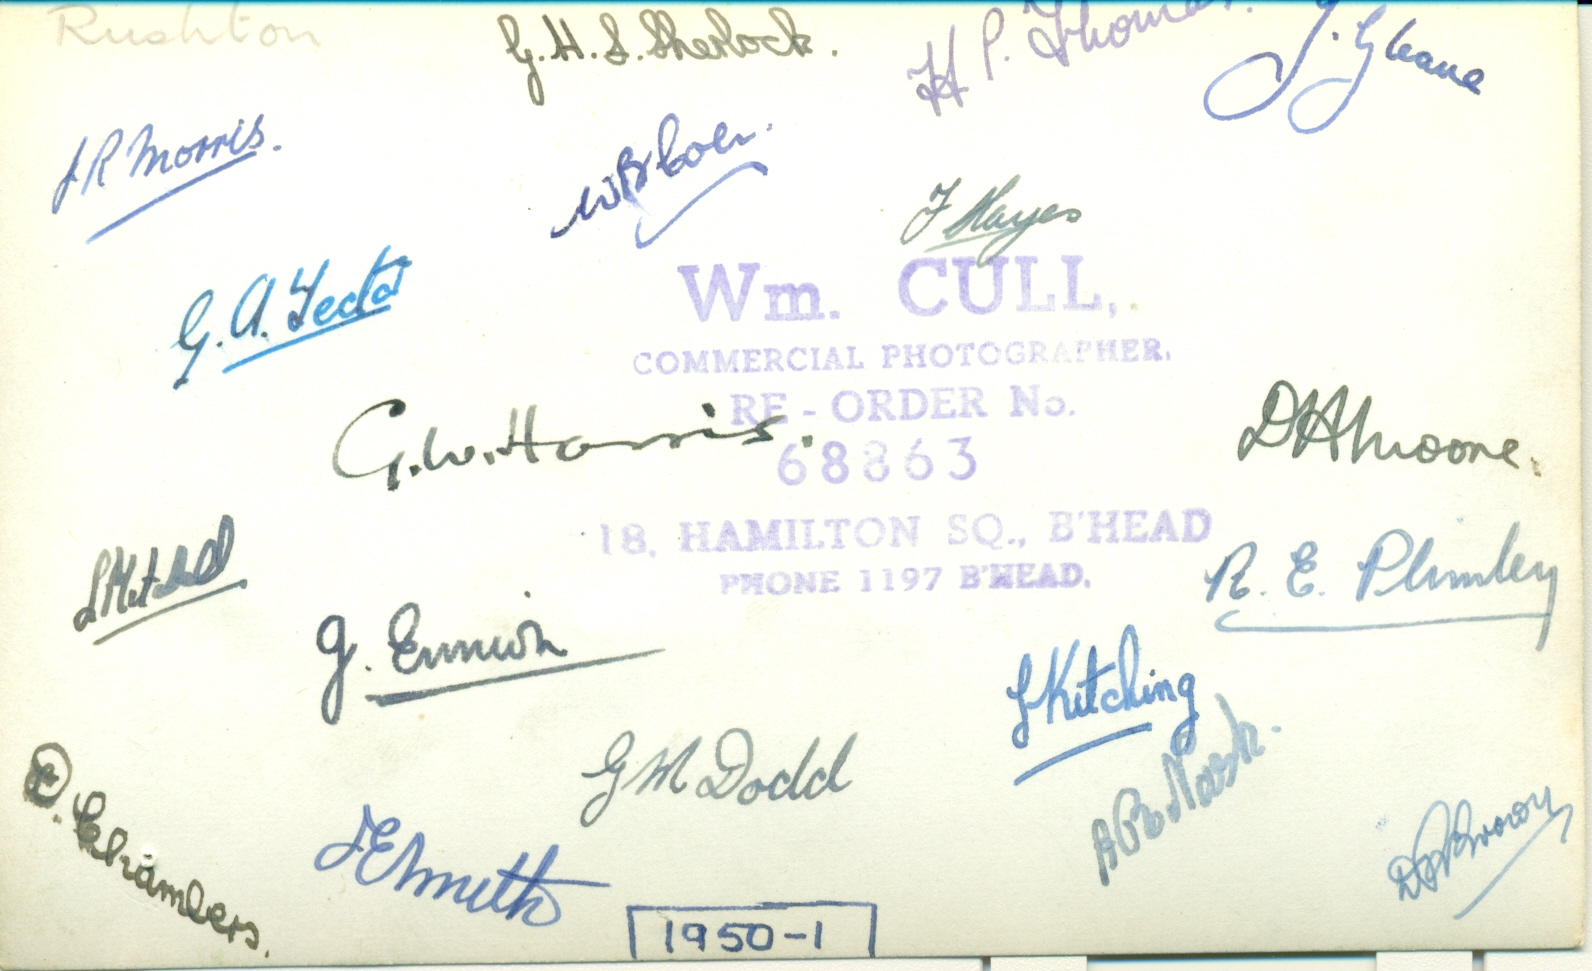 Rushton
G. H. S. Sherlock.
H P. Thomas.
J. Gleave
J R Morris.
W B
F Hayes
G. A.
Wm. CULL,
COMMERCIAL PHOTOGRAPHER.
RE-ORDER No.
68863
18, HAMILTON SQ., B'HEAD
PHONE 1197 B'HEAD.
G. W. Harris.
D H Moore.
Mitchell
R. E. Plumley
G. Ennion
J Kitching
G M Dodd
A R E Nash.
D. Chambers.
J E Smith
Brown
1950-1